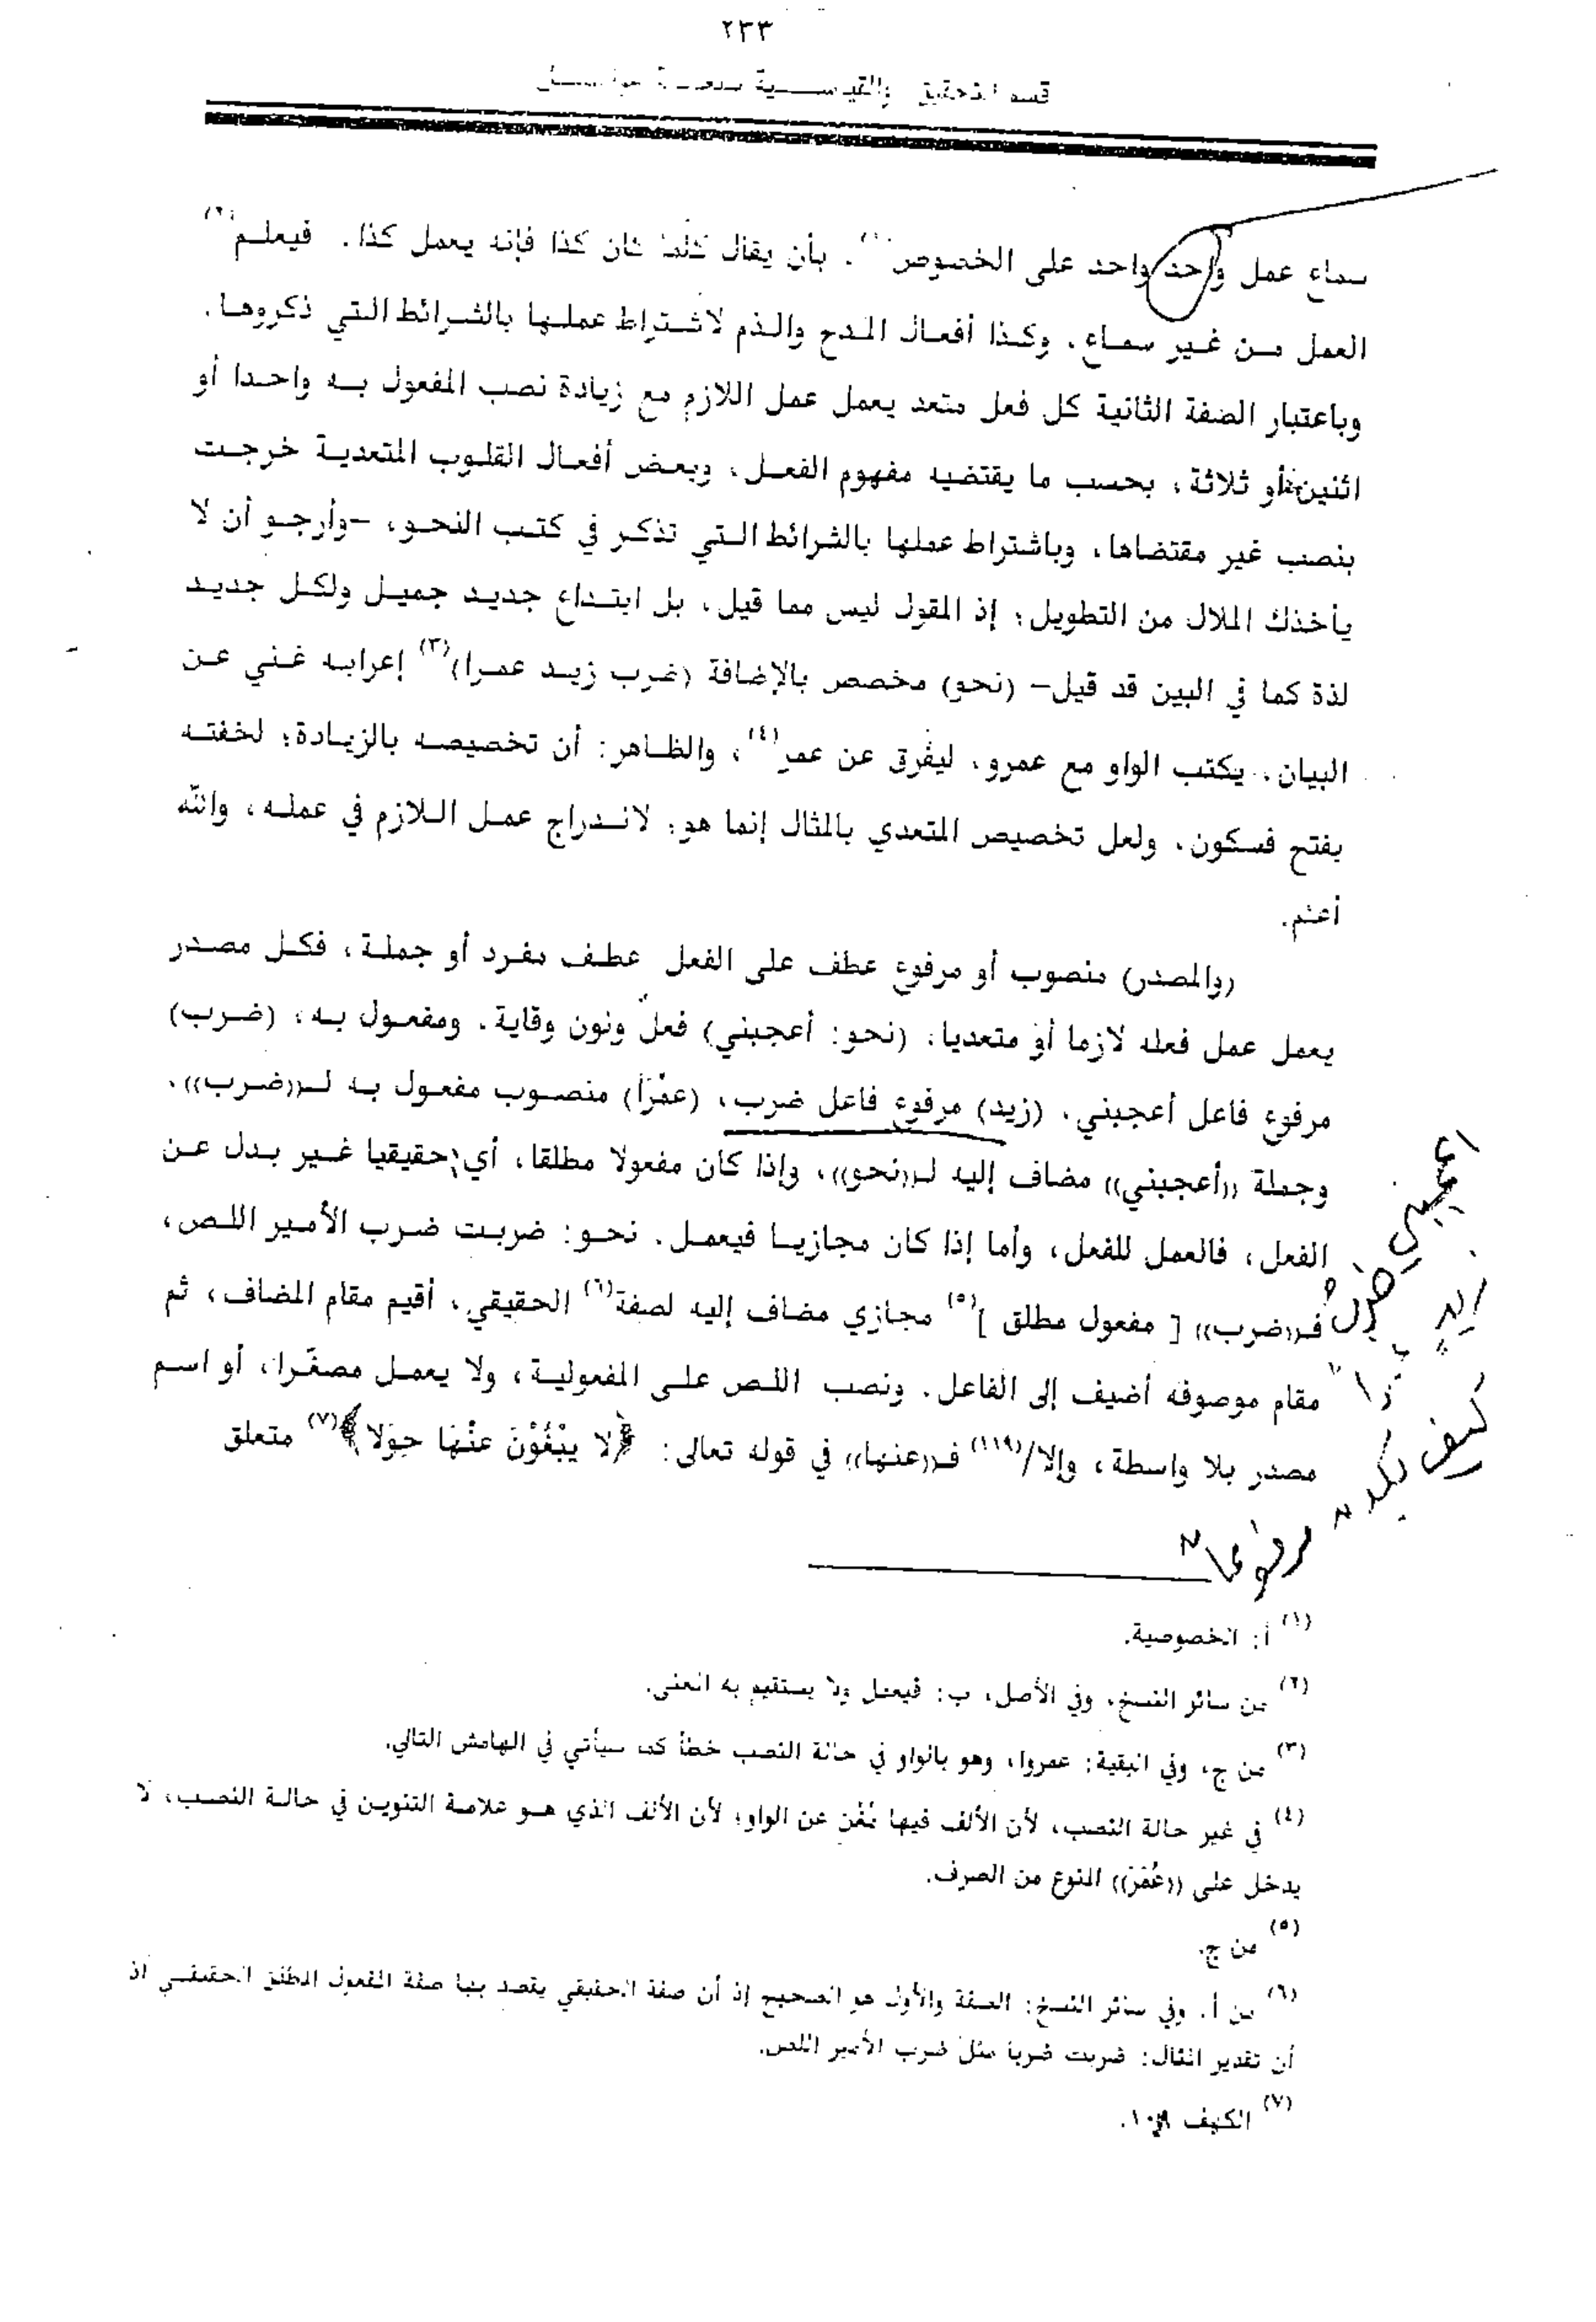 ٢٣٣
قسم التحقيق والقياسية
سماع عمل واحد واحد على الخصوص(١)، بأن يقال كلما كان كذا فإنه يعمل كذا. فيعلم(٢)
العمل من غير سماع، وكذا أفعال المدح والذم لاشتراط عملها بالشرائط التي ذكروها.
وباعتبار الصفة الثانية كل فعل متعد يعمل عمل اللازم مع زيادة نصب المفعول به واحدا أو
اثنين أو ثلاثة، بحسب ما يقتضيه مفهوم الفعل، وبعض أفعال القلوب المتعدية خرجت
بنصب غير مقتضاها، وباشتراط عملها بالشرائط التي تذكر في كتب النحو، -وأرجو أن لا
يأخذك الملال من التطويل؛ إذ المقول ليس مما قيل، بل ابتداع جديد جميل ولكل جديد
لذة كما في البين قد قيل- (نحو) مخصص بالإضافة (ضرب زيد عمرا)(٣) إعرابه غني عن
البيان، يكتب الواو مع عمرو، ليفرق عن عمر(٤)، والظاهر: أن تخصيصه بالزيادة؛ لخفته
بفتح فسكون، ولعل تخصيص المتعدي بالمثال إنما هو؛ لاندراج عمل اللازم في عمله، والله
أعلم.
(والمصدر) منصوب أو مرفوع عطف على الفعل عطف مفرد أو جملة، فكل مصدر
يعمل عمل فعله لازما أو متعديا، (نحو: أعجبني) فعلٌ ونون وقاية، ومفعول به، (ضرب)
مرفوع فاعل أعجبني، (زيد) مرفوع فاعل ضرب، (عمْرًا) منصوب مفعول به لـ((ضرب))،
وجملة ((أعجبني)) مضاف إليه لـ((نحو))، وإذا كان مفعولا مطلقا، أي حقيقيا غير بدل عن
الفعل، فالعمل للفعل، وأما إذا كان مجازيا فيعمل، نحو: ضربت ضرب الأمير اللص،
فـ((ضرب)) [ مفعول مطلق ](٥) مجازي مضاف إليه لصفة(٦) الحقيقي، أقيم مقام المضاف، ثم
مقام موصوفه أضيف إلى الفاعل، ونصب اللص على المفعولية، ولا يعمل مصغّرا، أو اسم
مصدر بلا واسطة، وإلا/(١١٩) فـ((عنها)) في قوله تعالى: ﴿لا يبْغُوْنَ عنْهَا حِوَلا﴾(٧) متعلق
أعجبني ضرب
زيد
كيف يكون مرفوعا
(١) أ: الخصوصية.
(٢) من سائر النسخ، وفي الأصل، ب: فيعمل ولا يستقيم به المعنى.
(٣) من ج، وفي البقية: عمروا، وهو بالواو في حالة النصب خطأ كما سيأتي في الهامش التالي.
(٤) في غير حالة النصب، لأن الألف فيها تُغْن عن الواو؛ لأن الألف الذي هو علامة التنوين في حالة النصب، لا
يدخل على ((عُمَرَ)) الممنوع من الصرف.
(٥) من ج.
(٦) من أ، وفي سائر النسخ: الصفة والأول هو الصحيح إذ أن صفة الحقيقي يقصد بها صفة المفعول المطلق الحقيقي اذ
أن تقدير المثال: ضربت ضربا مثل ضرب الأمير اللص.
(٧) الكهف